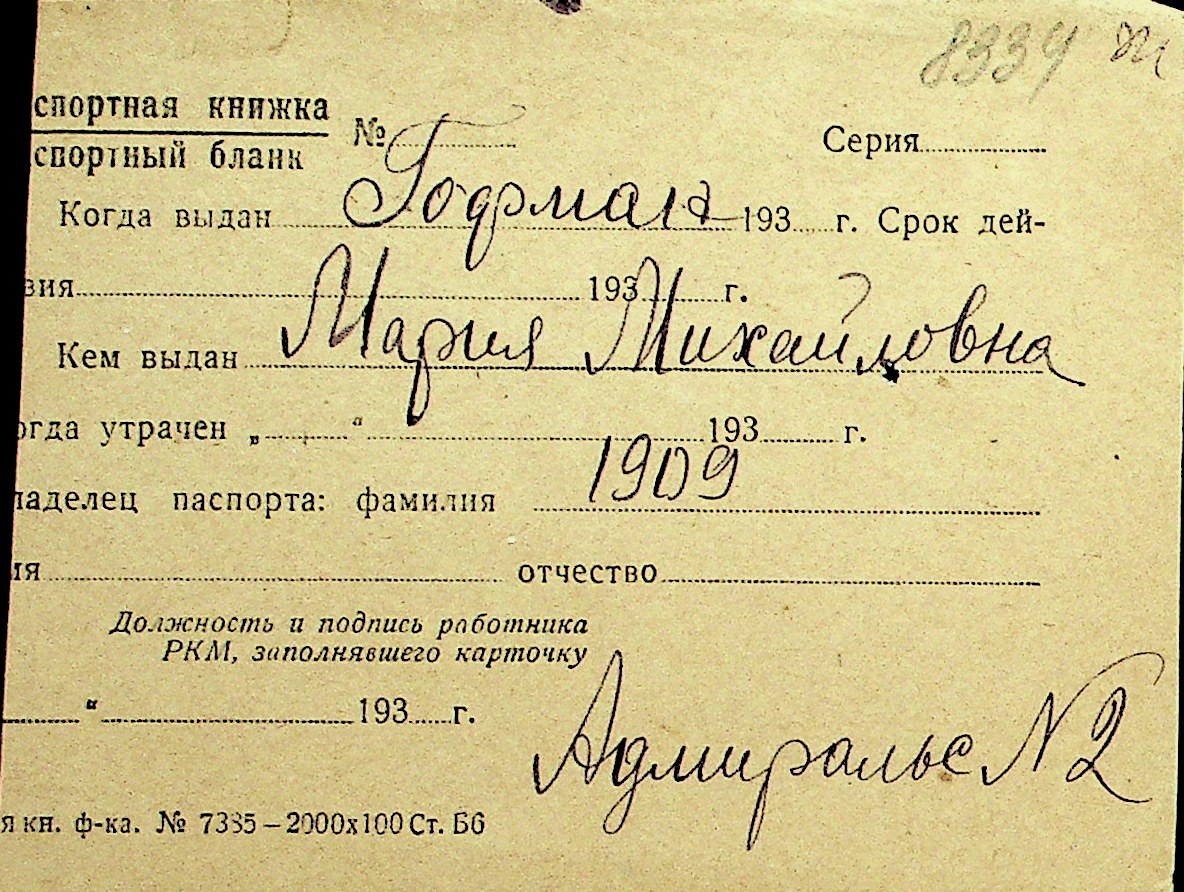 8334
спортная книжка
спортный бланк
№ Серия
Когда выдан Гофман 193 г. Срок дей-
вия 193 г.
Кем выдан Мария Михайловна
огда утрачен „ “ 193 г.
1909
ладелец паспорта: фамилия
ия отчество
Должность и подпись работника
РКМ, заполнявшего карточку
“ 193 г.
Адмиральс N 2
я кн. ф-ка. № 7385—2000х100 Ст. Б6